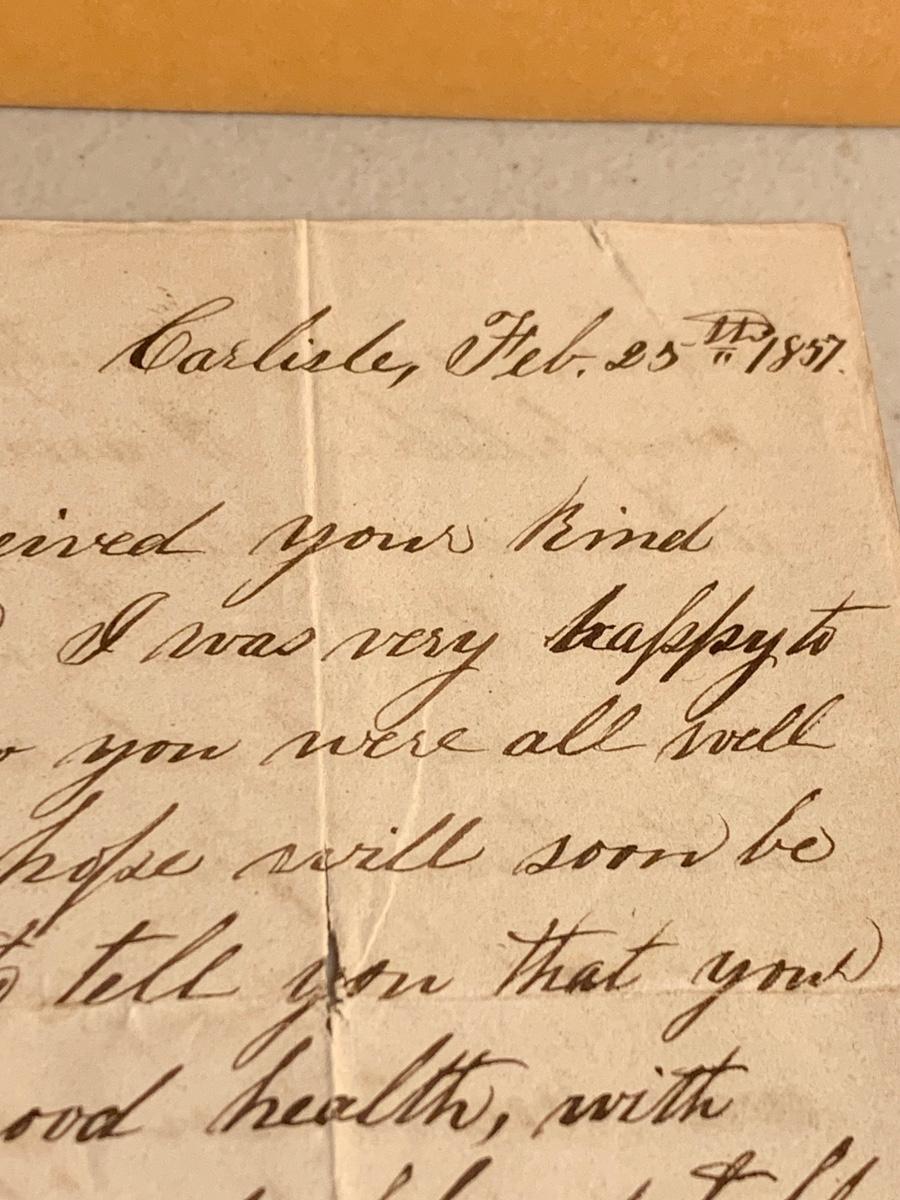 Carlisle, Feb. 25th 1857.
eived your kind
I was very happy to
you were all well
hope will soon be
tell you that your
ood health, with